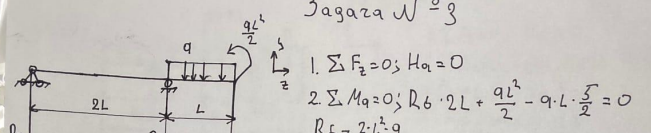 Задача №3
qL²/2
q
y
z
2L
L
1. ΣF_z=0; Hₐ=0
2. ΣMₐ=0; Rб·2L + qL²/2 - q·L·5/2 = 0